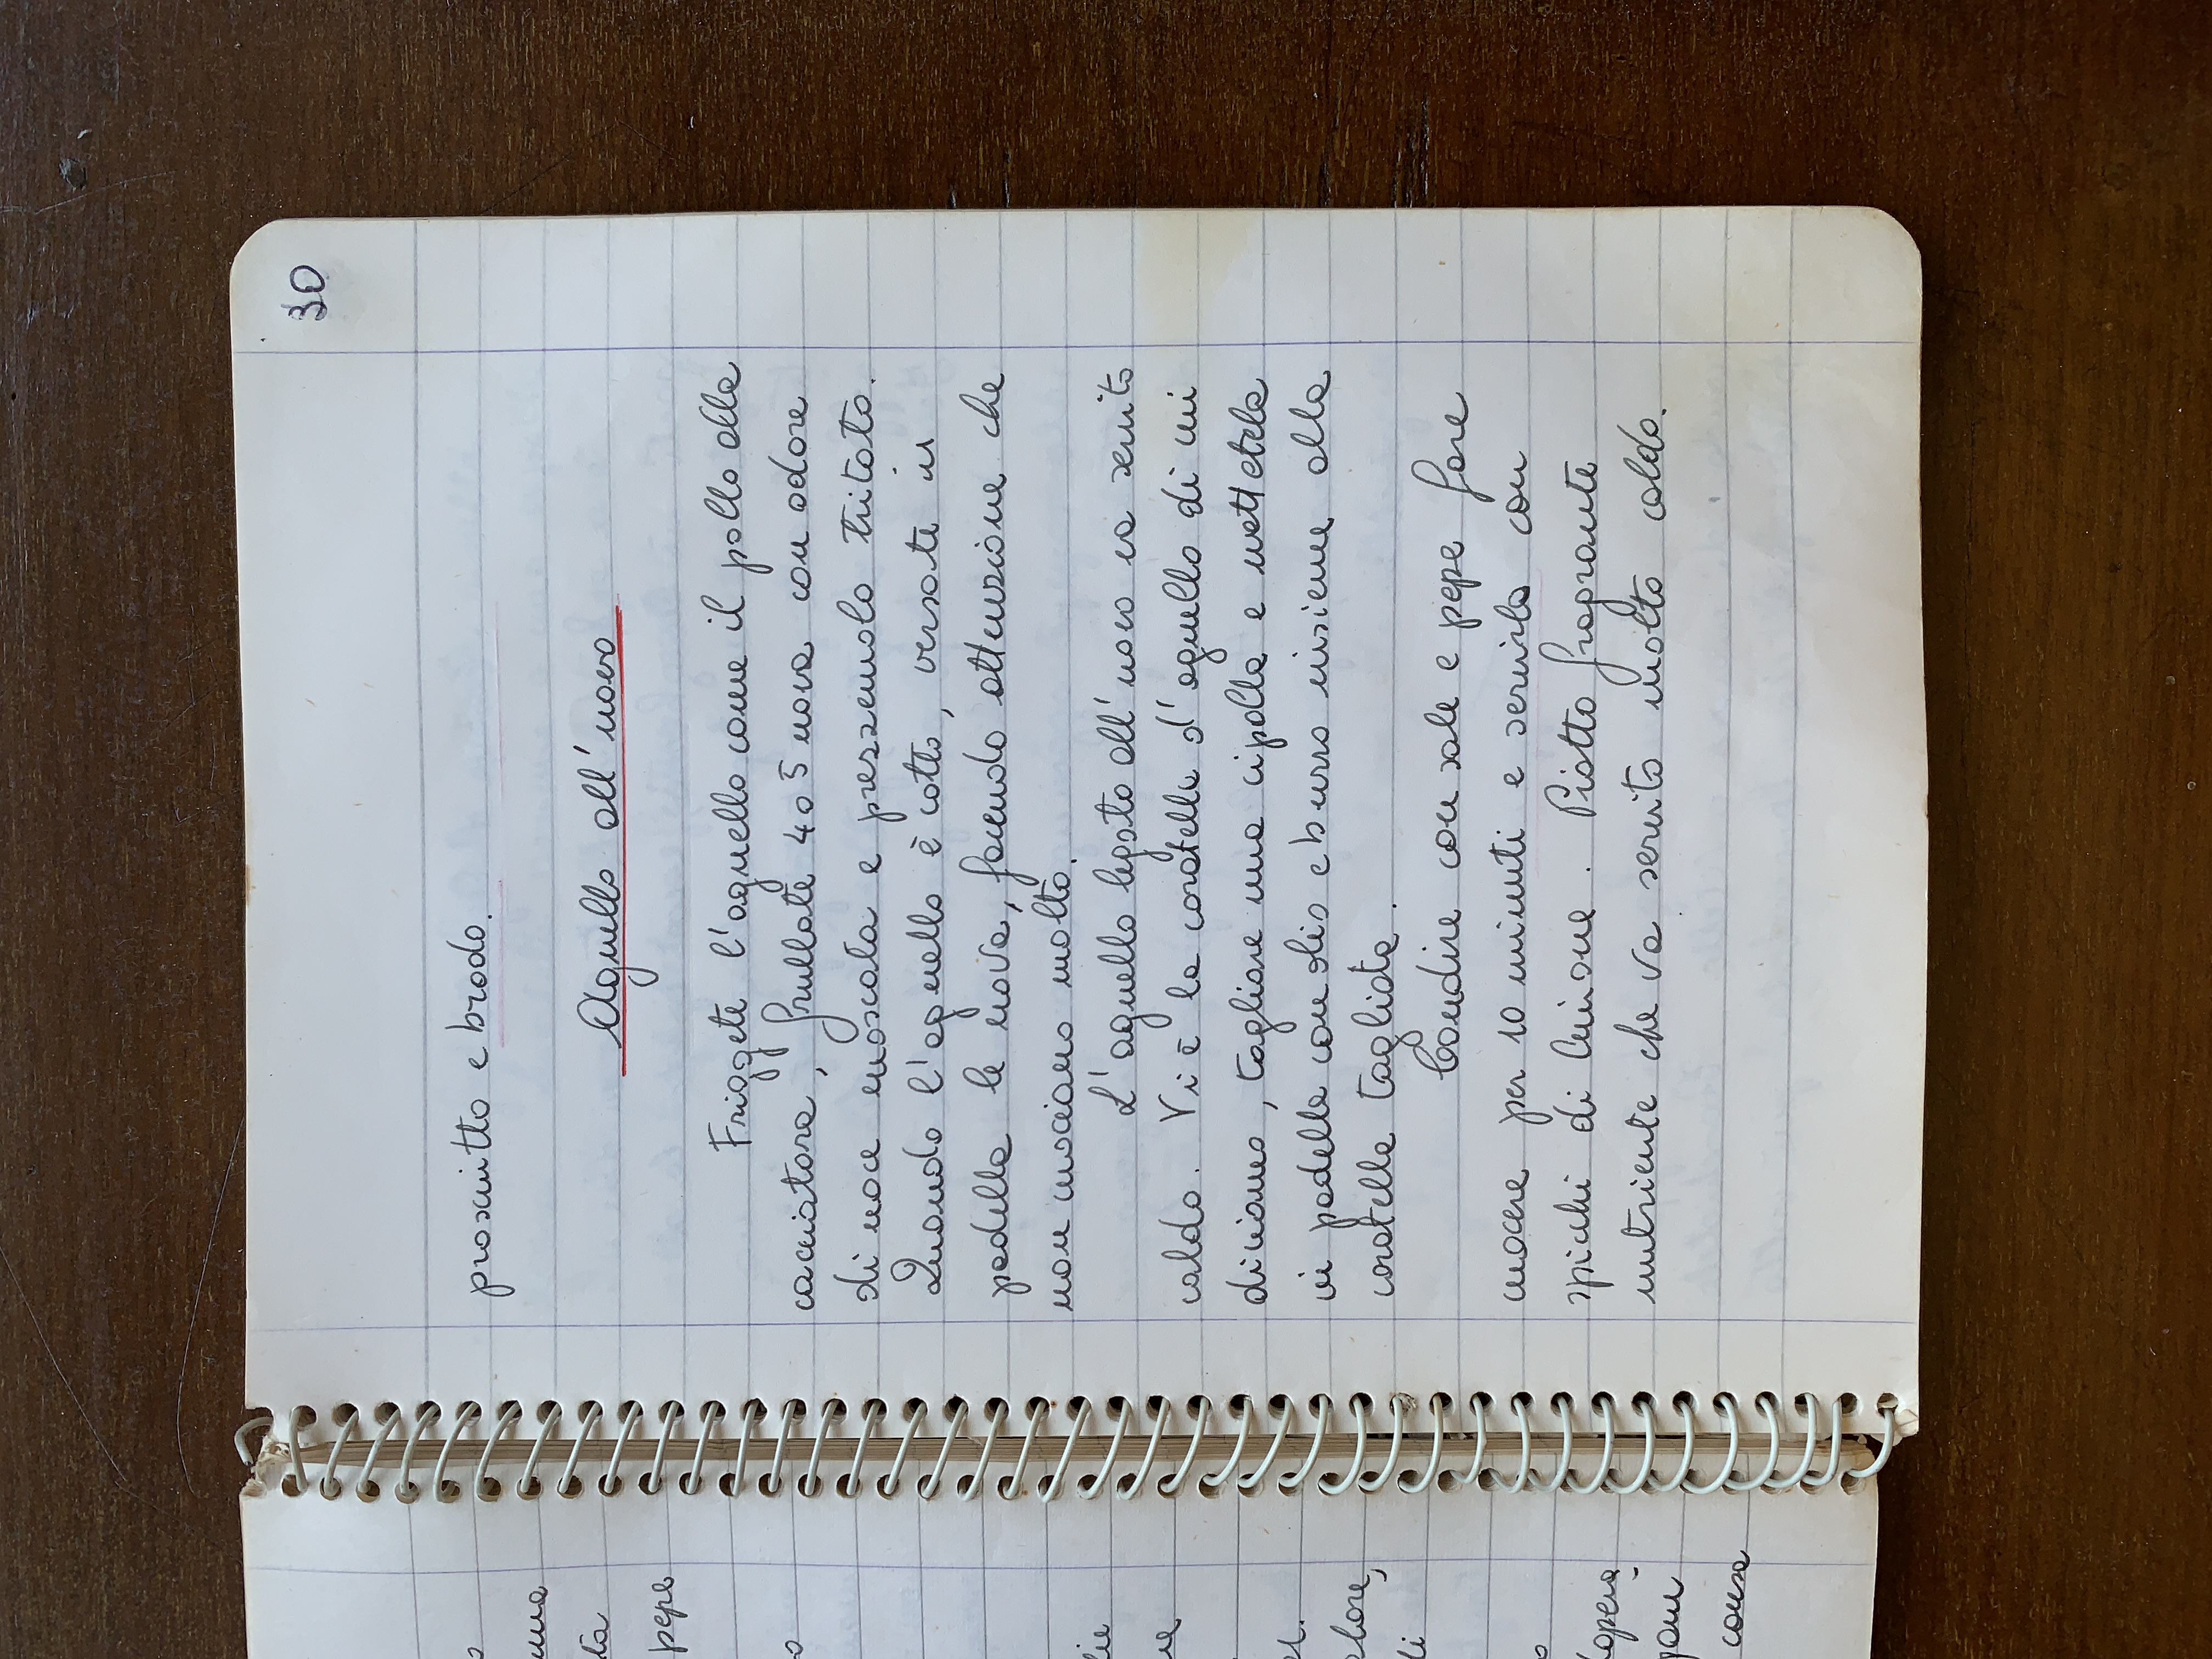 30
prosciutto e brodo.
Agnello all'uovo
Friggete l'agnello come il pollo alla
cacciatora, frullate 4 o 5 uova con odore
di noce moscata e prezzemolo tritato.
Quando l'agnello è cotto, versate in
padella le uova, facendo attenzione che
non cuociano molto.
L'agnello legato all'uovo va servito
caldo. Vi è la coratella d'agnello di cui
diciamo, tagliare una cipolla e mettetela
in padella con olio e burro insieme alla
coratella tagliata.
Condire con sale e pepe fare
cuocere per 10 minuti e servirla con
spicchi di limone. Piatto fragrante
nutriente che va servito molto caldo.
pepe